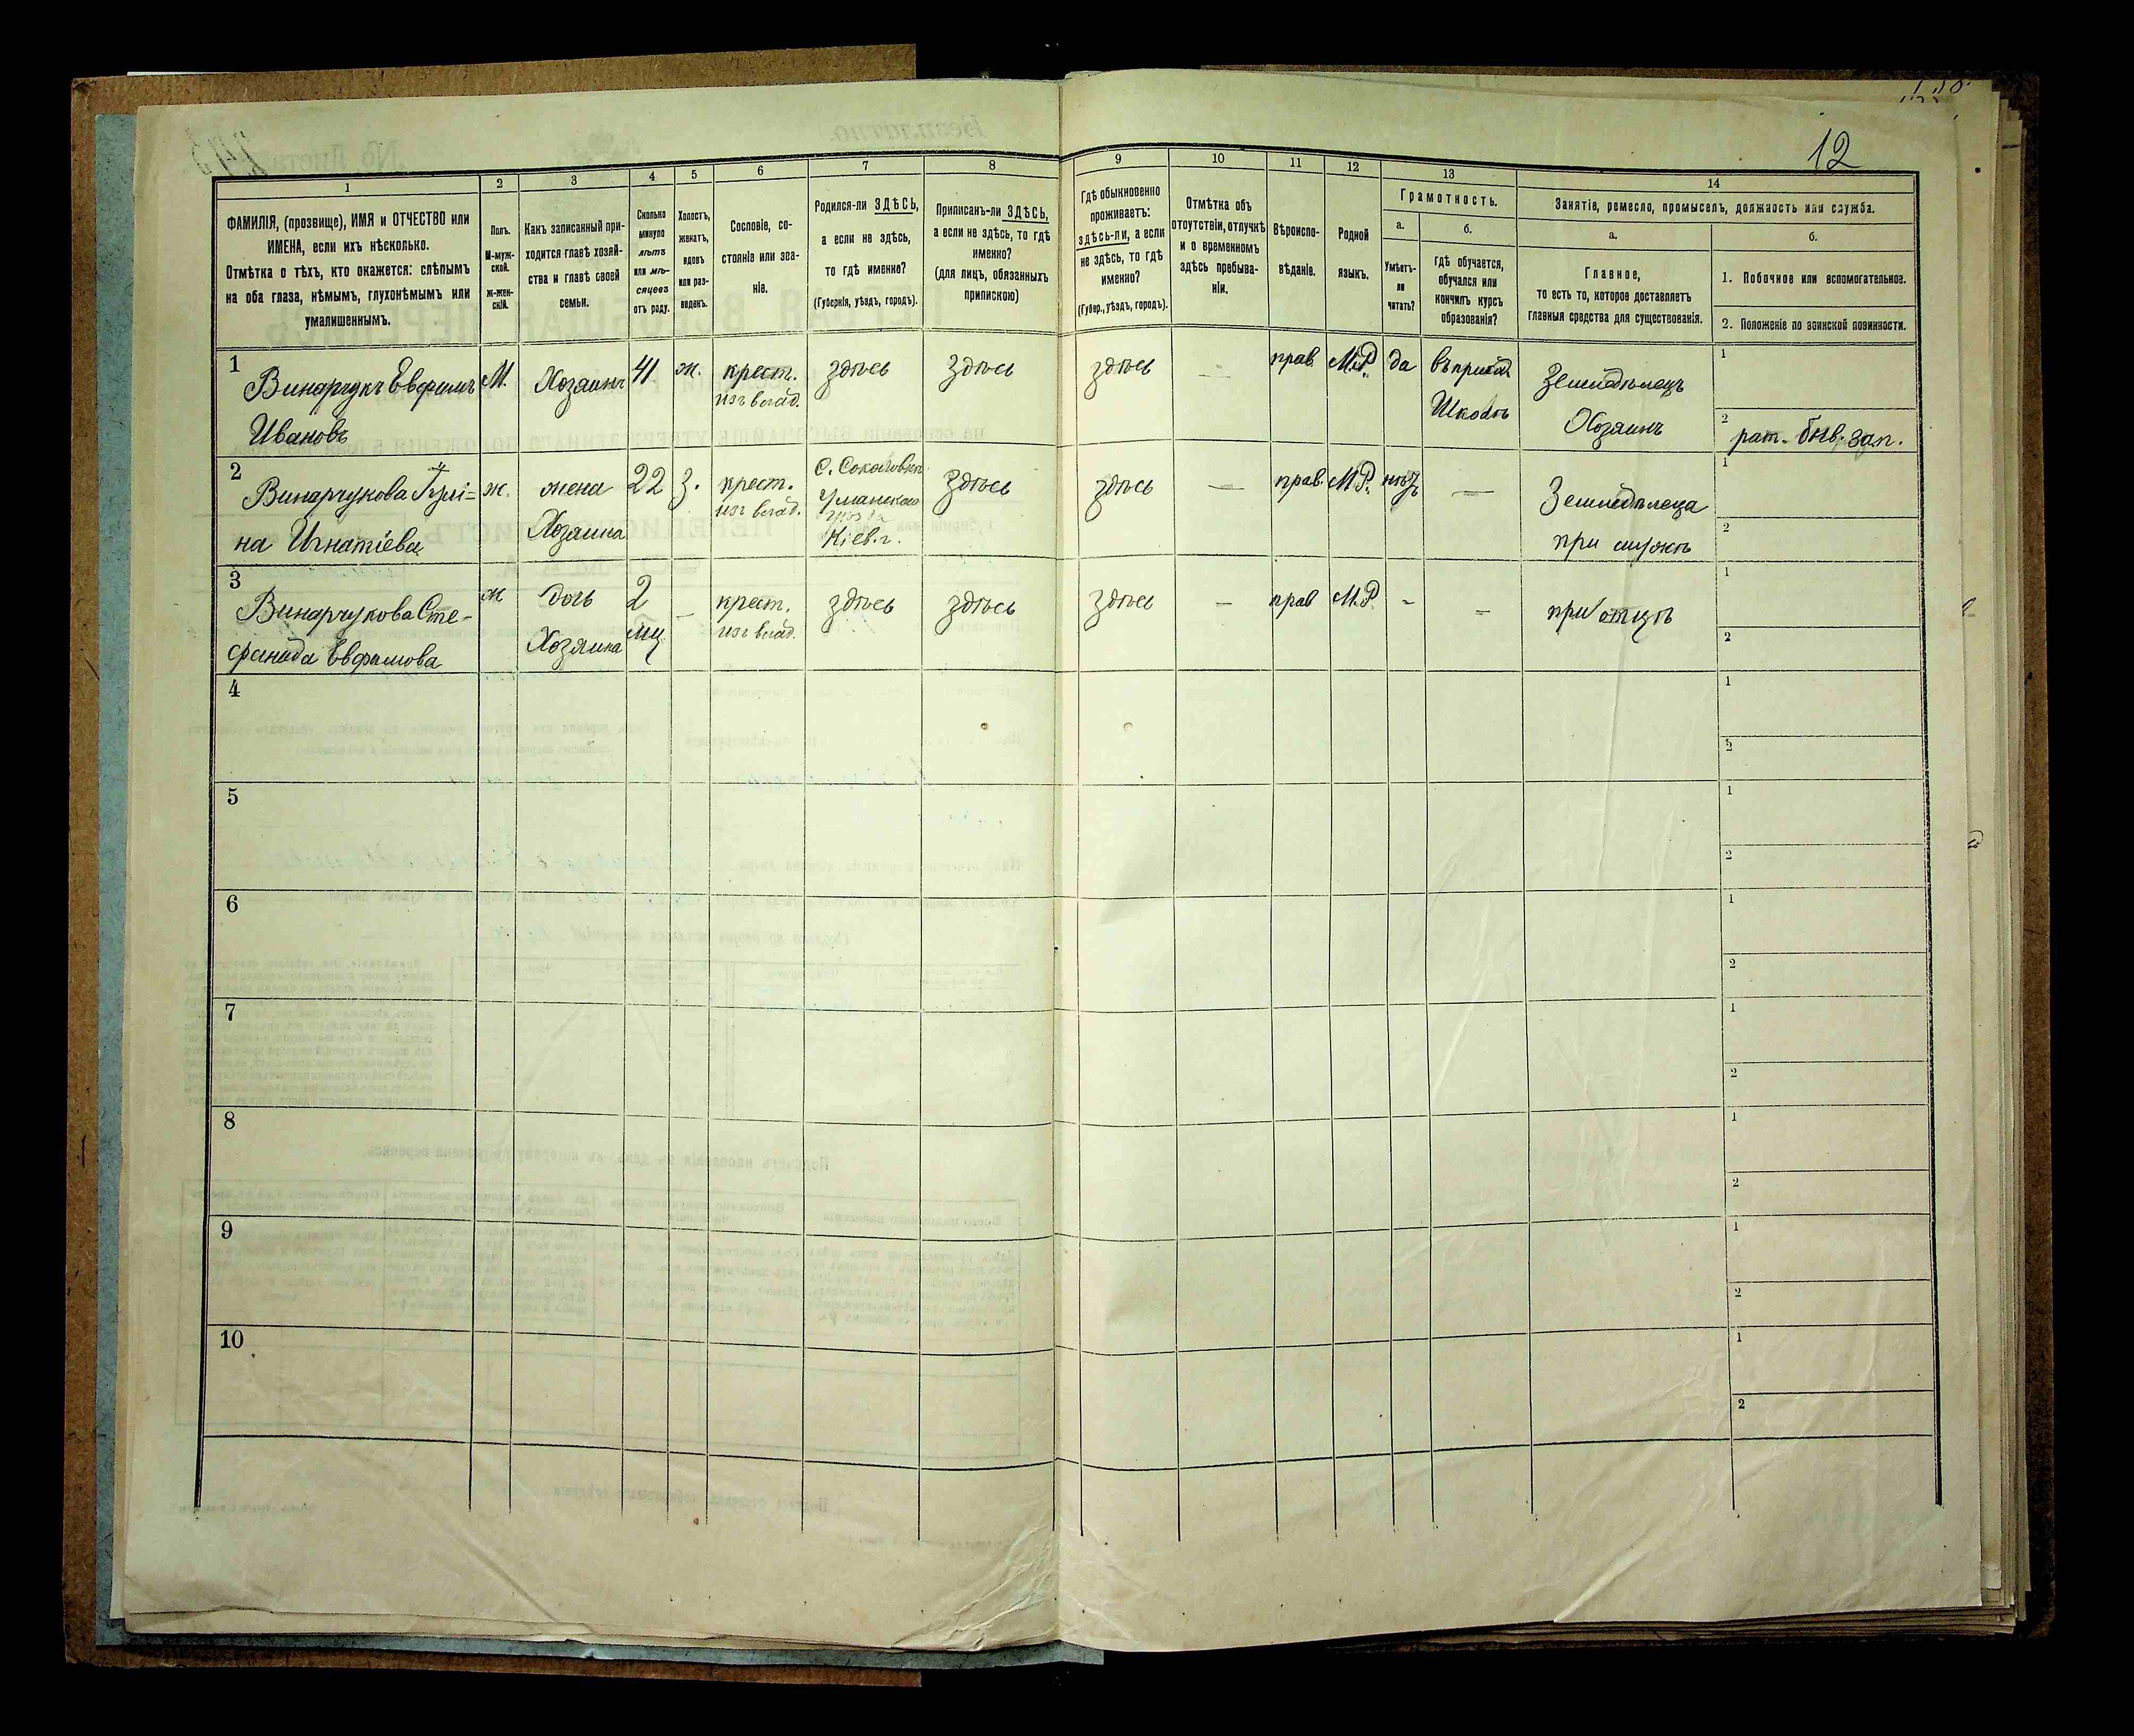 12
1 2 3 4 5 6 7 8 9 10 11 12 13 14
ФАМИЛІЯ, (прозвище), ИМЯ и ОТЧЕСТВО или
ИМЕНА, если ихъ нѣсколько.
Отмѣтка о тѣхъ, кто окажется: слѣпымъ
на оба глаза, нѣмымъ, глухонѣмымъ или
умалишеннымъ.
Полъ.
М-муж-
ской.
Ж-жен-
скій.
Какъ записанный при-
ходится главѣ хозяй-
ства и главѣ своей
семьи.
Сколько
минуло
лѣтъ
или мѣ-
сяцевъ
отъ роду.
Холостъ,
женатъ,
вдовъ
или раз-
веденъ.
Сословіе, со-
стояніе или зва-
ніе.
Родился-ли ЗДѢСЬ,
а если не здѣсь,
то гдѣ именно?
(Губернія, уѣздъ, городъ).
Приписанъ-ли ЗДѢСЬ,
а если не здѣсь, то гдѣ
именно?
(для лицъ, обязанныхъ
припискою)
Гдѣ обыкновенно
проживаетъ:
здѣсь-ли, а если
не здѣсь, то гдѣ
именно?
(Губер., уѣздъ, городъ).
Отмѣтка объ
отсутствіи, отлучкѣ
и о временномъ
здѣсь пребыва-
ніи.
Вѣроиспо-
вѣданіе.
Родной
языкъ.
Грамотность.
а.
Умѣетъ-
ли
читать?
б.
гдѣ обучается,
обучался или
кончилъ курсъ
образованія?
Занятіе, ремесло, промыселъ, должность или служба.
а.
Главное,
то есть то, которое доставляетъ
главныя средства для существованія.
б.
1. Побочное или вспомогательное.
2. Положеніе по воинской повинности.
1
Винарчукъ Евфимъ
Ивановъ
М.
Хозяинъ
41
ж.
крест.
изъ влад.
здѣсь
здѣсь
здѣсь
—
прав.
М.Р.
да
въ приход.
Школѣ
Земледѣлецъ
Хозяинъ
1
2
рат.
зап.
2
Винарчукова
на Игнатіева
ж.
жена
Хозяина
22
З.
крест.
изъ влад.
с. Соколовки
Уманскаго
уѣзда
Кіев. г.
здѣсь
здѣсь
—
прав.
М.Р.
нѣтъ
—
Земледѣлеца
при мужѣ
1
2
3
Винарчукова Сте-
фанида Евфимова
ж
дочь
Хозяина
2
мц
—
крест.
изъ влад.
здѣсь
здѣсь
здѣсь
—
прав
М.Р.
-
-
при отцѣ
1
2
4
1
2
5
1
2
6
1
2
7
1
2
8
1
2
9
1
2
10
1
2